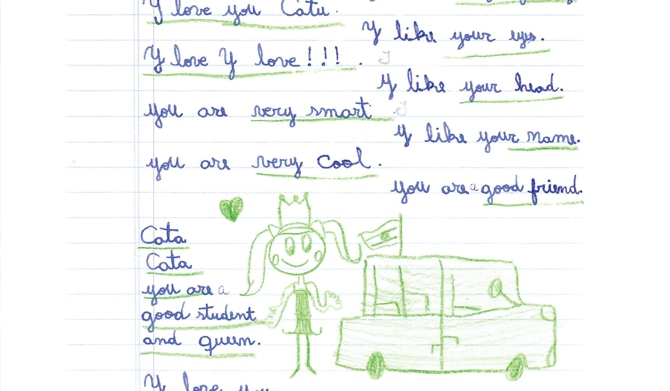 I love you Catu.
I like your eyes.
I love I love!!!.
I like your head.
you are very smart
I like your name.
you are very cool.
you are a good friend.
Cata
Cata
you are a
good student
and queen.
I love you